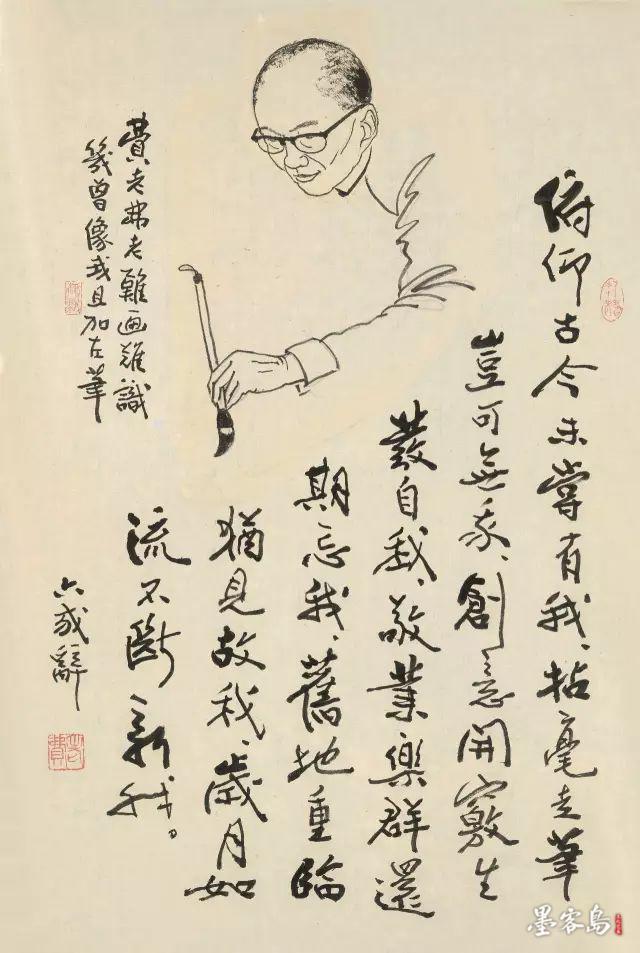 俯仰古今未嘗有我、拈毫走筆
豈可無我、創意開竅生
發自我、敬業樂群還
期忘我、舊地重臨
猶見故我、歲月如
流不斷新我。
六我辭
費老弗老難画難識
幾曾像我且加左筆
墨客岛